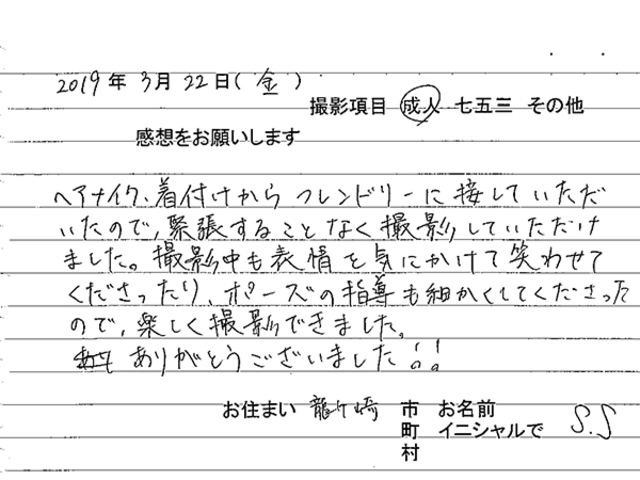 2019年 3月 22日(金)
撮影項目 成人 七五三 その他
感想をお願いします
ヘアメイク、着付けから フレンドリーに接していただ
いたので、緊張することなく撮影していただけ
ました。撮影中も表情を気にかけて笑わせて
くださったり、ポーズの指導も細かくしてくださった
ので、楽しく撮影できました。
ありがとうございました!!
お住まい 龍ケ崎 市 お名前
町 イニシャルで S.S
村